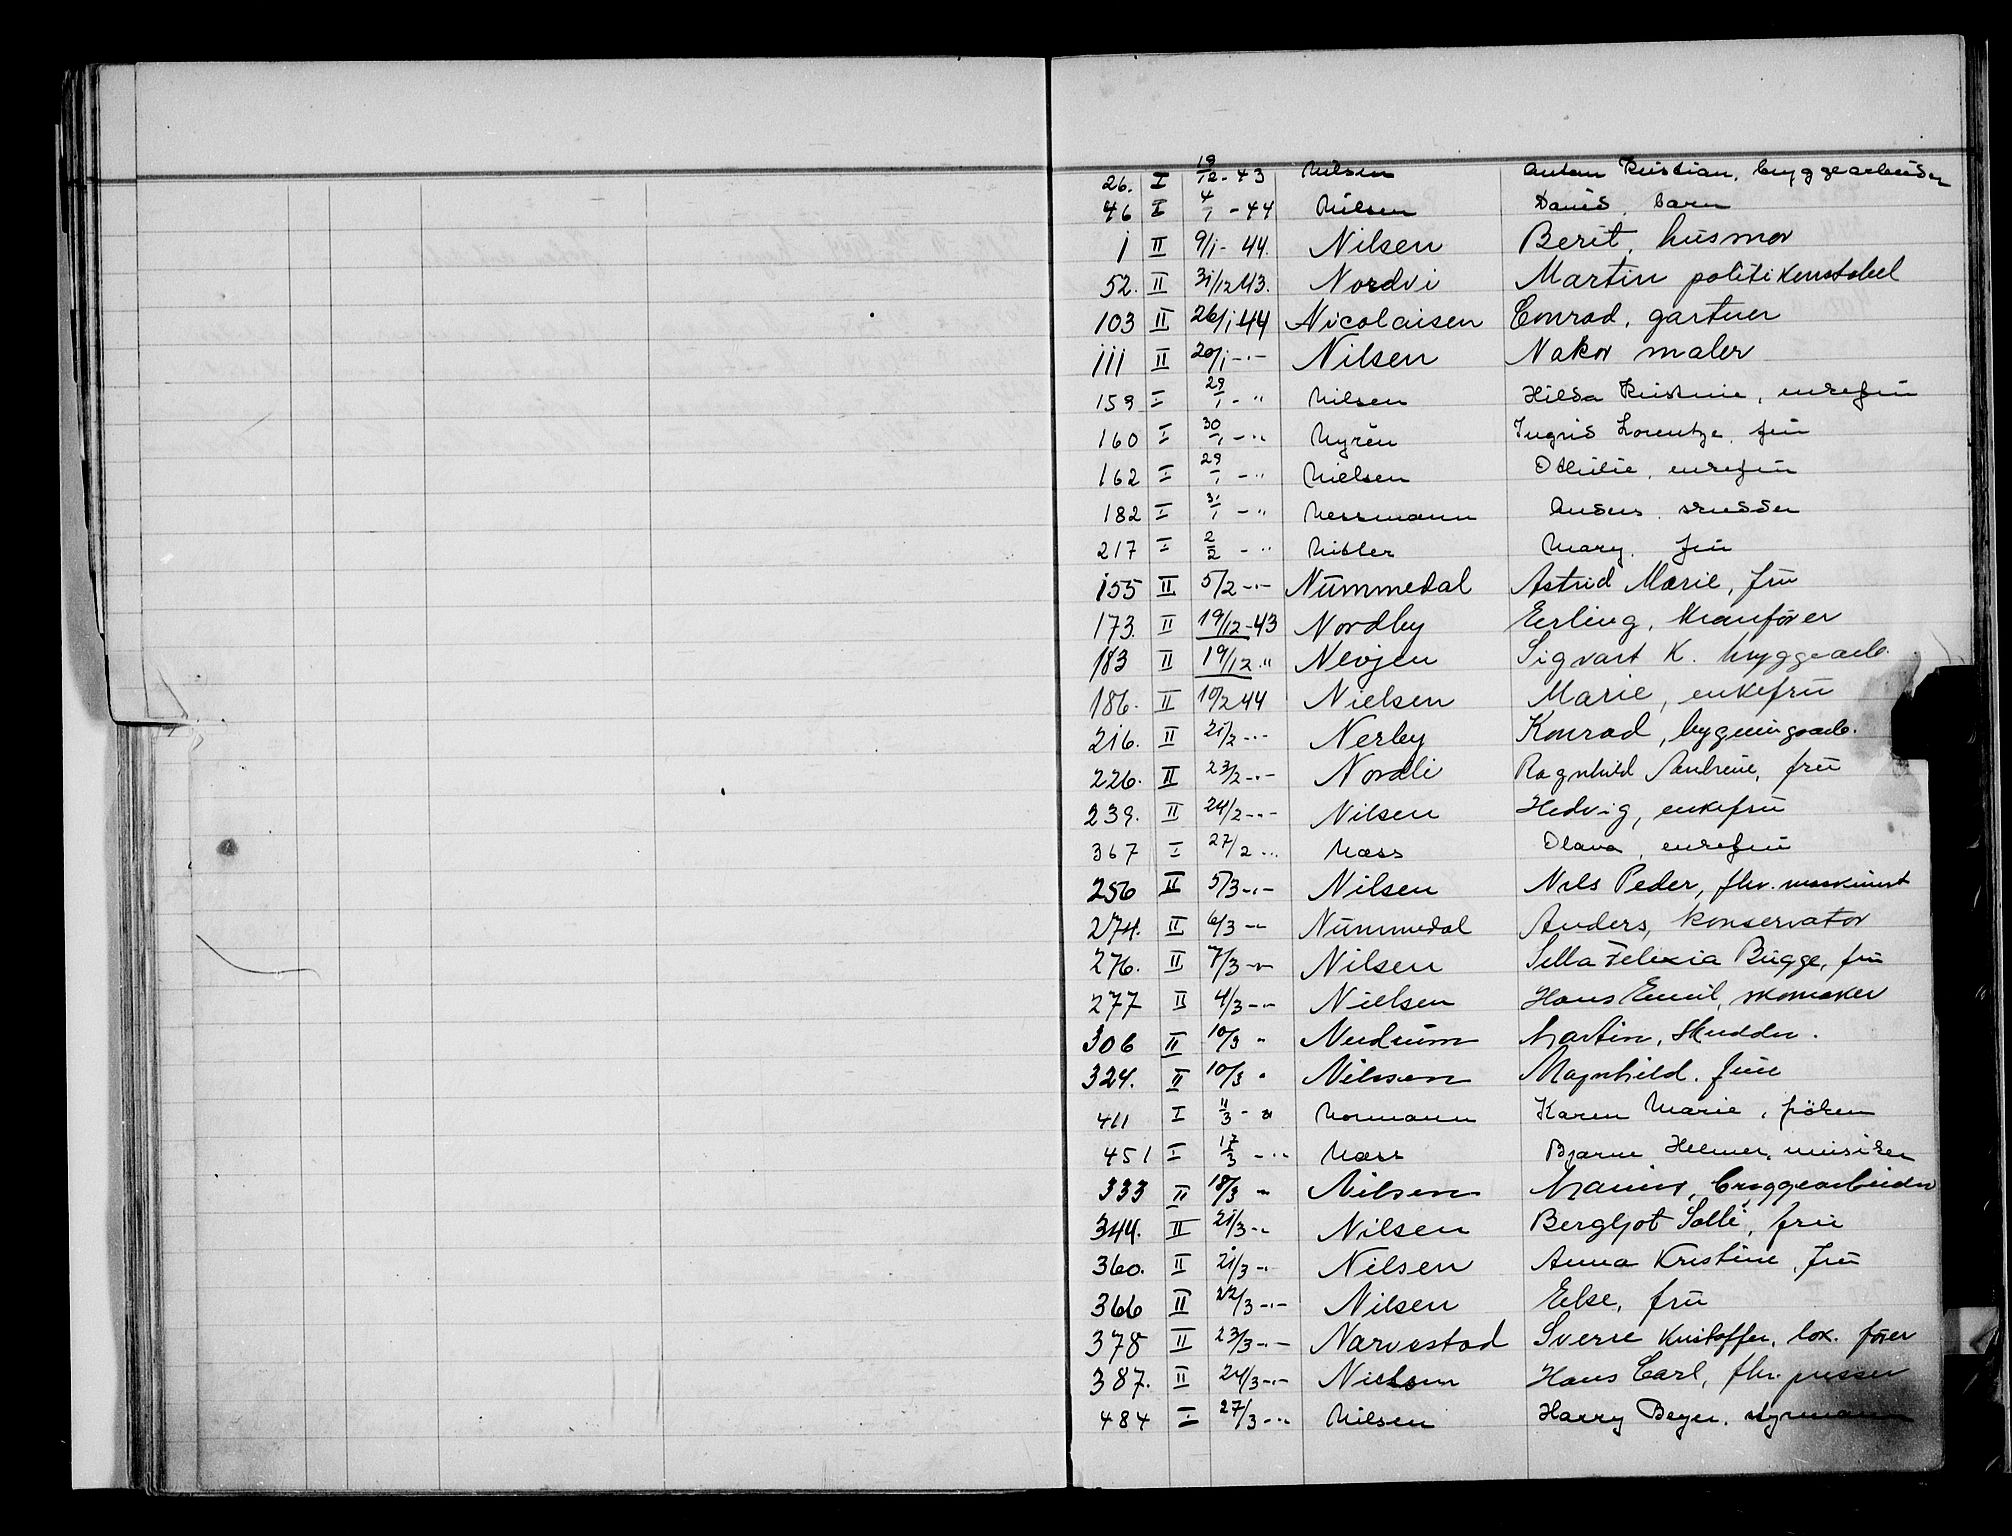 26. I 19/12-43 Nilsen Anton Kristian, bryggearbeider
46 I 4/1-44 Nilsen David, barn
1 II 9/1-44. Nilsen Berit, husmor
52. II 31/12 43. Nordvi Martin politikonstabel
103 II 26/1 44 Nicolaisen Conrad, gartner
111 II 20/1 -"- Nilsen Nakor maler
159 I 29/1 - " Nilsen Hilda Kristine, enkefru
160 I 30/1 - " Nyrén Ingrid Lorentze, fru
162 I 29/1 - " Nielsen Othilie, enkefru
182 I 31/1 - " Nessmann Anders, skredder
217 I 2/2 - " Mary, fru
155 II 5/2 -"- Nummedal Astrid Marie, fru
173. II 19/12-43 Nordby Erling, kranfører
183 II 19/12 " Nevjen Sigvart K. bryggearb.
186. II 10/2 44 Nielsen Marie, enkefru
216. II 21/2 -"- Nerby Konrad, bygningsarb.
226. II 23/2 -"- Nordli Ragnhild Andrene, fru
239. II 24/2 -"- Nilsen Hedvig, enkefru
367 I 27/2 -" Næss Olava, enkefru
256 II 5/3 -"- Nilsen Nils Peder, fhv. maskinist
274. II 6/3 -"- Nummedal Anders, konservator
276. II 7/3 -"- Nilsen Sella Felixia Bugge, fru
277 II 4/3 -"- Nielsen Hans Emil, skomaker
306 II 10/3 " Neudrum Martin, Skredder.
324. II 10/3 " Nilssen Magnhild. frue
411 I 11/3 - " Normann Karen Marie, frøken
451 I 17/3 - " Næss Bjarne Helmer, musiker
333 II 18/3 " Nilsen bryggearbeider
344. II 21/3 -" Nilsen Bergljot Solli, fru
360. II 21/3 -" Nilsen Anna Kristine, fru
366 II 22/3 -"- Nilsen Else, fru
378 II 23/3 -"- Narvestad Sverre Kristoffer, lok. fører
387. II 24/3 -"- Nielsen Hans Carl, fhv. pusser
484 I 27/3 -" Nilsen Harry Beyer, styrmann